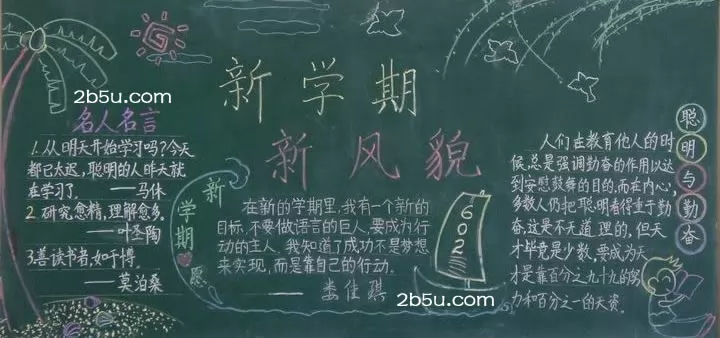 新学期
新风貌
2b5u.com
名人名言
1.从明天开始学习吗?今天
都已太迟,聪明的人昨天就
在学习了。——马休
2.研究愈精,理解愈多。
——叶圣陶
3.善读书者,如于博。
——莫泊桑
新学期❤愿
在新的学期里,我有一个新的
目标,不要做语言的巨人,要成为行
动的主人,我知道了成功不是梦想
来实现,而是靠自己的行动。
——娄佳琪
602
2b5u.com
聪明与勤奋
人们在教育他人的时
候总是强调勤奋的作用以达
到安慰鼓舞的目的,而在内心,
多数人仍把聪明看得重于勤
奋,这是不无道理的,但天
才毕竟是少数,要成为天
才是靠百分之九十九的努
力和百分之一的天资。